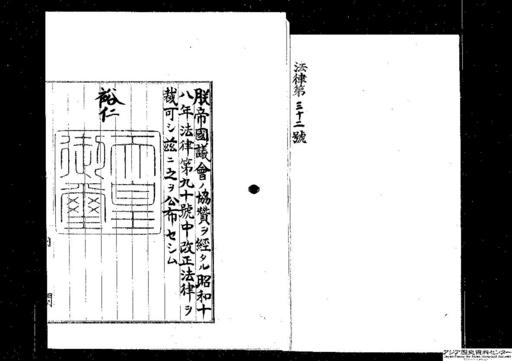 法律第三十二號
朕帝國議會ノ協贊ヲ經タル昭和十
八年法律第九十號中改正法律ヲ
裁可シ茲ニ之ヲ公布セシム
裕仁
天皇
御璽
内閣
アジア歴史資料センター